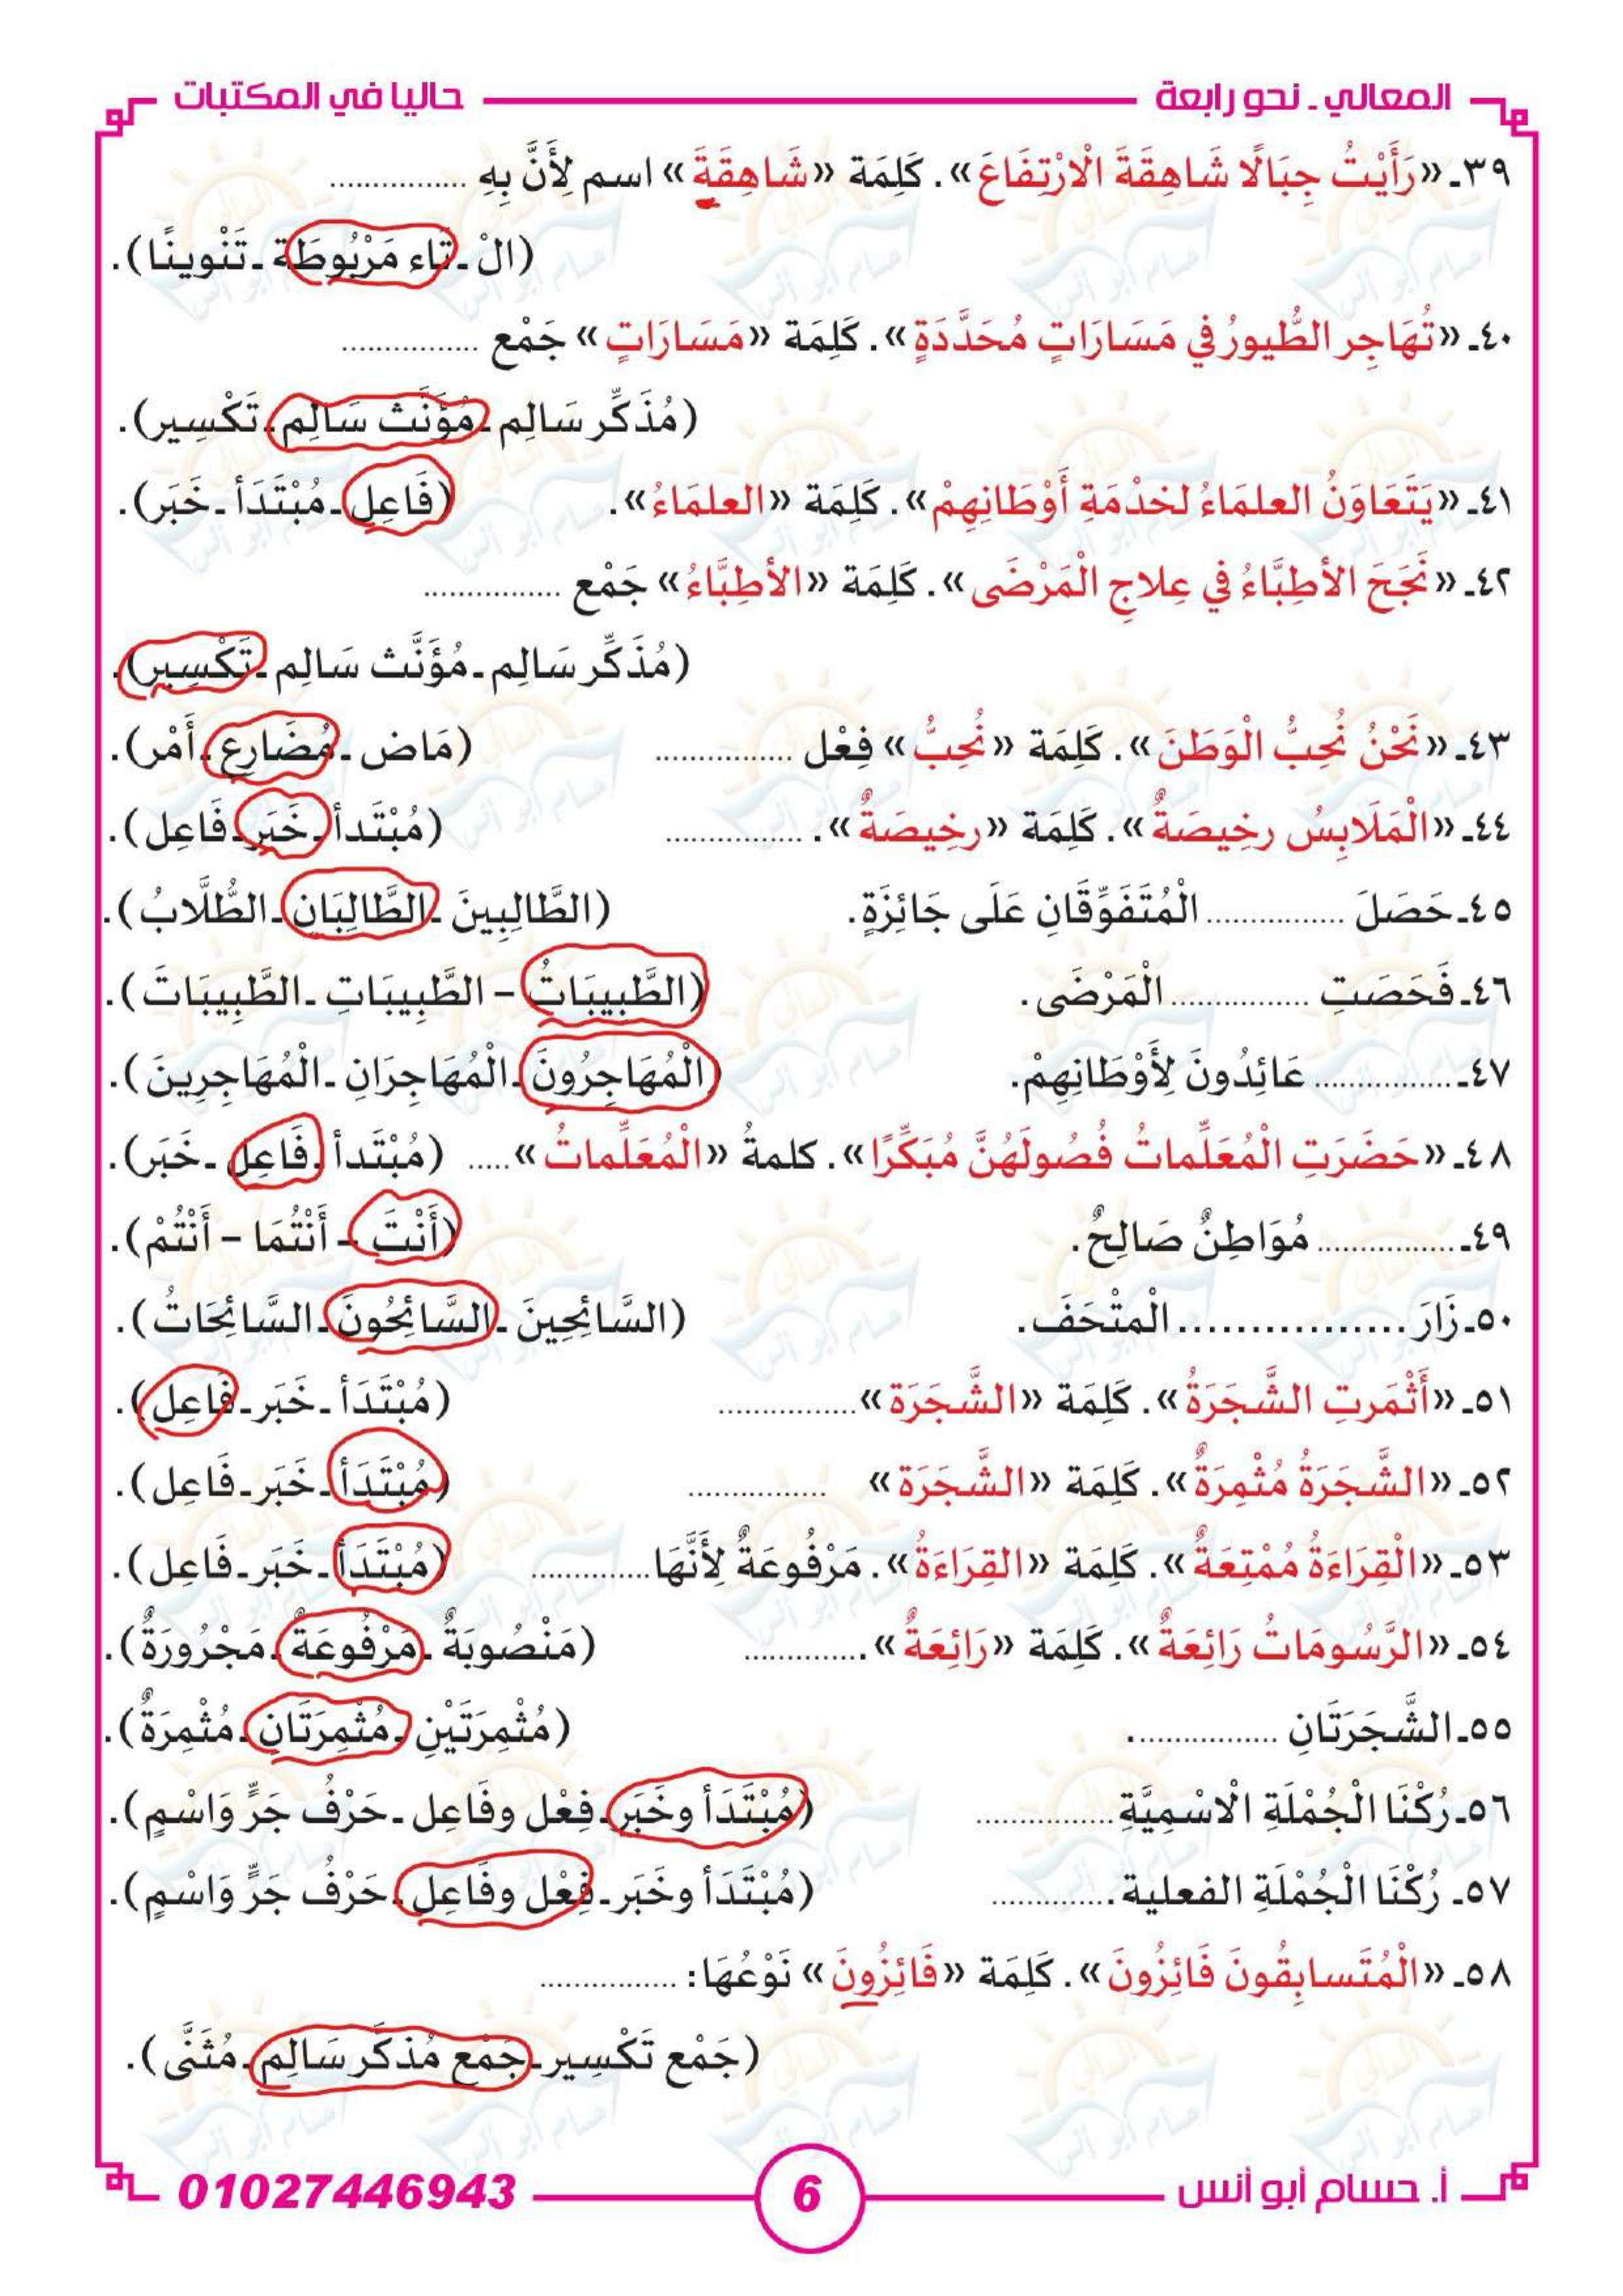 المعالي ـ نحو رابعة حاليا في المكتبات
٣٩ـ «رَأَيْتُ جِبَالًا شَاهِقَةَ الْارْتِفَاعَ». كَلِمَة «شَاهِقَةَ» اسم لِأَنَّ بِهِ ...............
(الْ ـ تَاء مَرْبُوطَة ـ تَنْوينًا).
٤٠ـ «تُهَاجِر الطُّيورُ في مَسَارَاتٍ مُحَدَّدَةٍ». كَلِمَة «مَسَارَاتٍ» جَمْع ...............
(مُذَكِّر سَالِم ـ مُؤَنَّث سَالِم ـ تَكْسِير).
٤١ـ «يَتَعَاوَنُ العلمَاءُ لخدْمَةِ أَوْطَانِهِمْ». كَلِمَة «العلمَاءُ». (فَاعِل ـ مُبْتَدَأ ـ خَبَر).
٤٢ـ «نَجَحَ الأطِبَّاءُ في عِلاجِ الْمَرْضَى». كَلِمَة «الأطِبَّاءُ» جَمْع ...............
(مُذَكِّر سَالِم ـ مُؤَنَّث سَالِم ـ تَكْسِير).
٤٣ـ «نَحْنُ نُحِبُّ الْوَطَنَ». كَلِمَة «نُحِبُّ» فِعْل ............... (مَاض ـ مُضَارِع ـ أَمْر).
٤٤ـ «الْمَلَابِسُ رخِيصَةٌ». كَلِمَة «رخِيصَةٌ». ............... (مُبْتَدأ ـ خَبَر ـ فَاعِل).
٤٥ـ حَصَلَ ............... الْمُتَفَوِّقَانِ عَلَى جَائِزَةٍ. (الطَّالِبِينَ ـ الطَّالِبَانِ ـ الطُّلَّابُ).
٤٦ـ فَحَصَتِ ............... الْمَرْضَى. (الطَّبِيبَاتُ – الطَّبِيبَاتِ ـ الطَّبِيبَاتَ).
٤٧ـ ............... عَائِدُونَ لِأَوْطَانِهِمْ. (الْمُهَاجِرُونَ ـ الْمُهَاجِرَانِ ـ الْمُهَاجِرِينَ).
٤٨ـ «حَضَرَتِ الْمُعَلِّماتُ فُصُولَهُنَّ مُبَكِّرًا». كلمةُ «الْمُعَلِّماتُ» ..... (مُبْتَدأ ـ فَاعِل ـ خَبَر).
٤٩ـ ............... مُوَاطِنٌ صَالِحٌ. (أَنْتَ – أَنْتُمَا – أَنْتُمْ).
٥٠ـ زَارَ ............... الْمتْحَفَ. (السَّائِحِينَ ـ السَّائِحُونَ ـ السَّائِحَاتُ).
٥١ـ «أَثْمَرتِ الشَّجَرَةُ». كَلِمَة «الشَّجَرَة» ............... (مُبْتَدَأ ـ خَبَر ـ فَاعِل).
٥٢ـ «الشَّجَرَةُ مُثْمِرَةٌ». كَلِمَة «الشَّجَرَة» ............... (مُبْتَدَأ ـ خَبَر ـ فَاعِل).
٥٣ـ «الْقِرَاءَةُ مُمْتِعَةٌ». كَلِمَة «القِرَاءَةُ». مَرْفُوعَةٌ لِأَنَّهَا............. (مُبْتَدَأ ـ خَبَر ـ فَاعِل).
٥٤ـ «الرَّسُومَاتُ رَائِعَةٌ». كَلِمَة «رَائِعَةٌ» .............. (مَنْصُوبَةٌ ـ مَرْفُوعَةٌ ـ مَجْرُورَةٌ).
٥٥ـ الشَّجَرَتَانِ ................ (مُثْمِرَتَيْنِ ـ مُثْمِرَتَانِ ـ مُثْمِرَةٌ).
٥٦ـ رُكْنَا الْجُمْلَةِ الْاسْمِيَّةِ............... (مُبْتَدَأ وخَبَر ـ فِعْل وفَاعِل ـ حَرْفُ جَرٍّ وَاسْمٍ).
٥٧ـ رُكْنَا الْجُمْلَةِ الفعلية .............. (مُبْتَدَأ وخَبَر ـ فِعْل وفَاعِل ـ حَرْفُ جَرٍّ وَاسْمٍ).
٥٨ـ «الْمُتَسابِقُونَ فَائِزُونَ». كَلِمَة «فَائِزُونَ» نَوْعُهَا: ...............
(جَمْع تَكْسِير ـ جَمْع مُذكَّر سَالِم ـ مُثَنَّى).
أ. حسام أبو أنس 6 01027446943